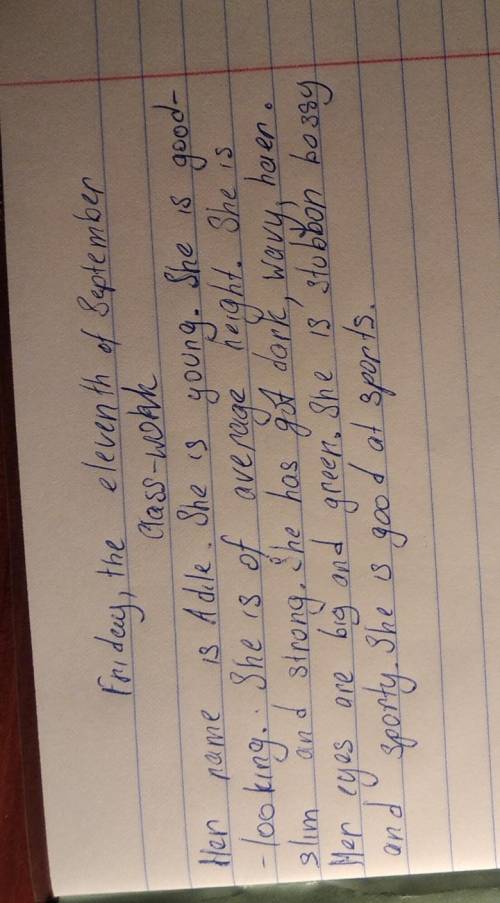 Friday, the eleventh of September
Class-work
Her name is Adile. She is young. She is good-
-looking. She is of average height. She is
slim and strong. She has got dark, wavy, haer.
Her eyes are big and green. She is stubbon bossy
and sporty. She is good at sports.